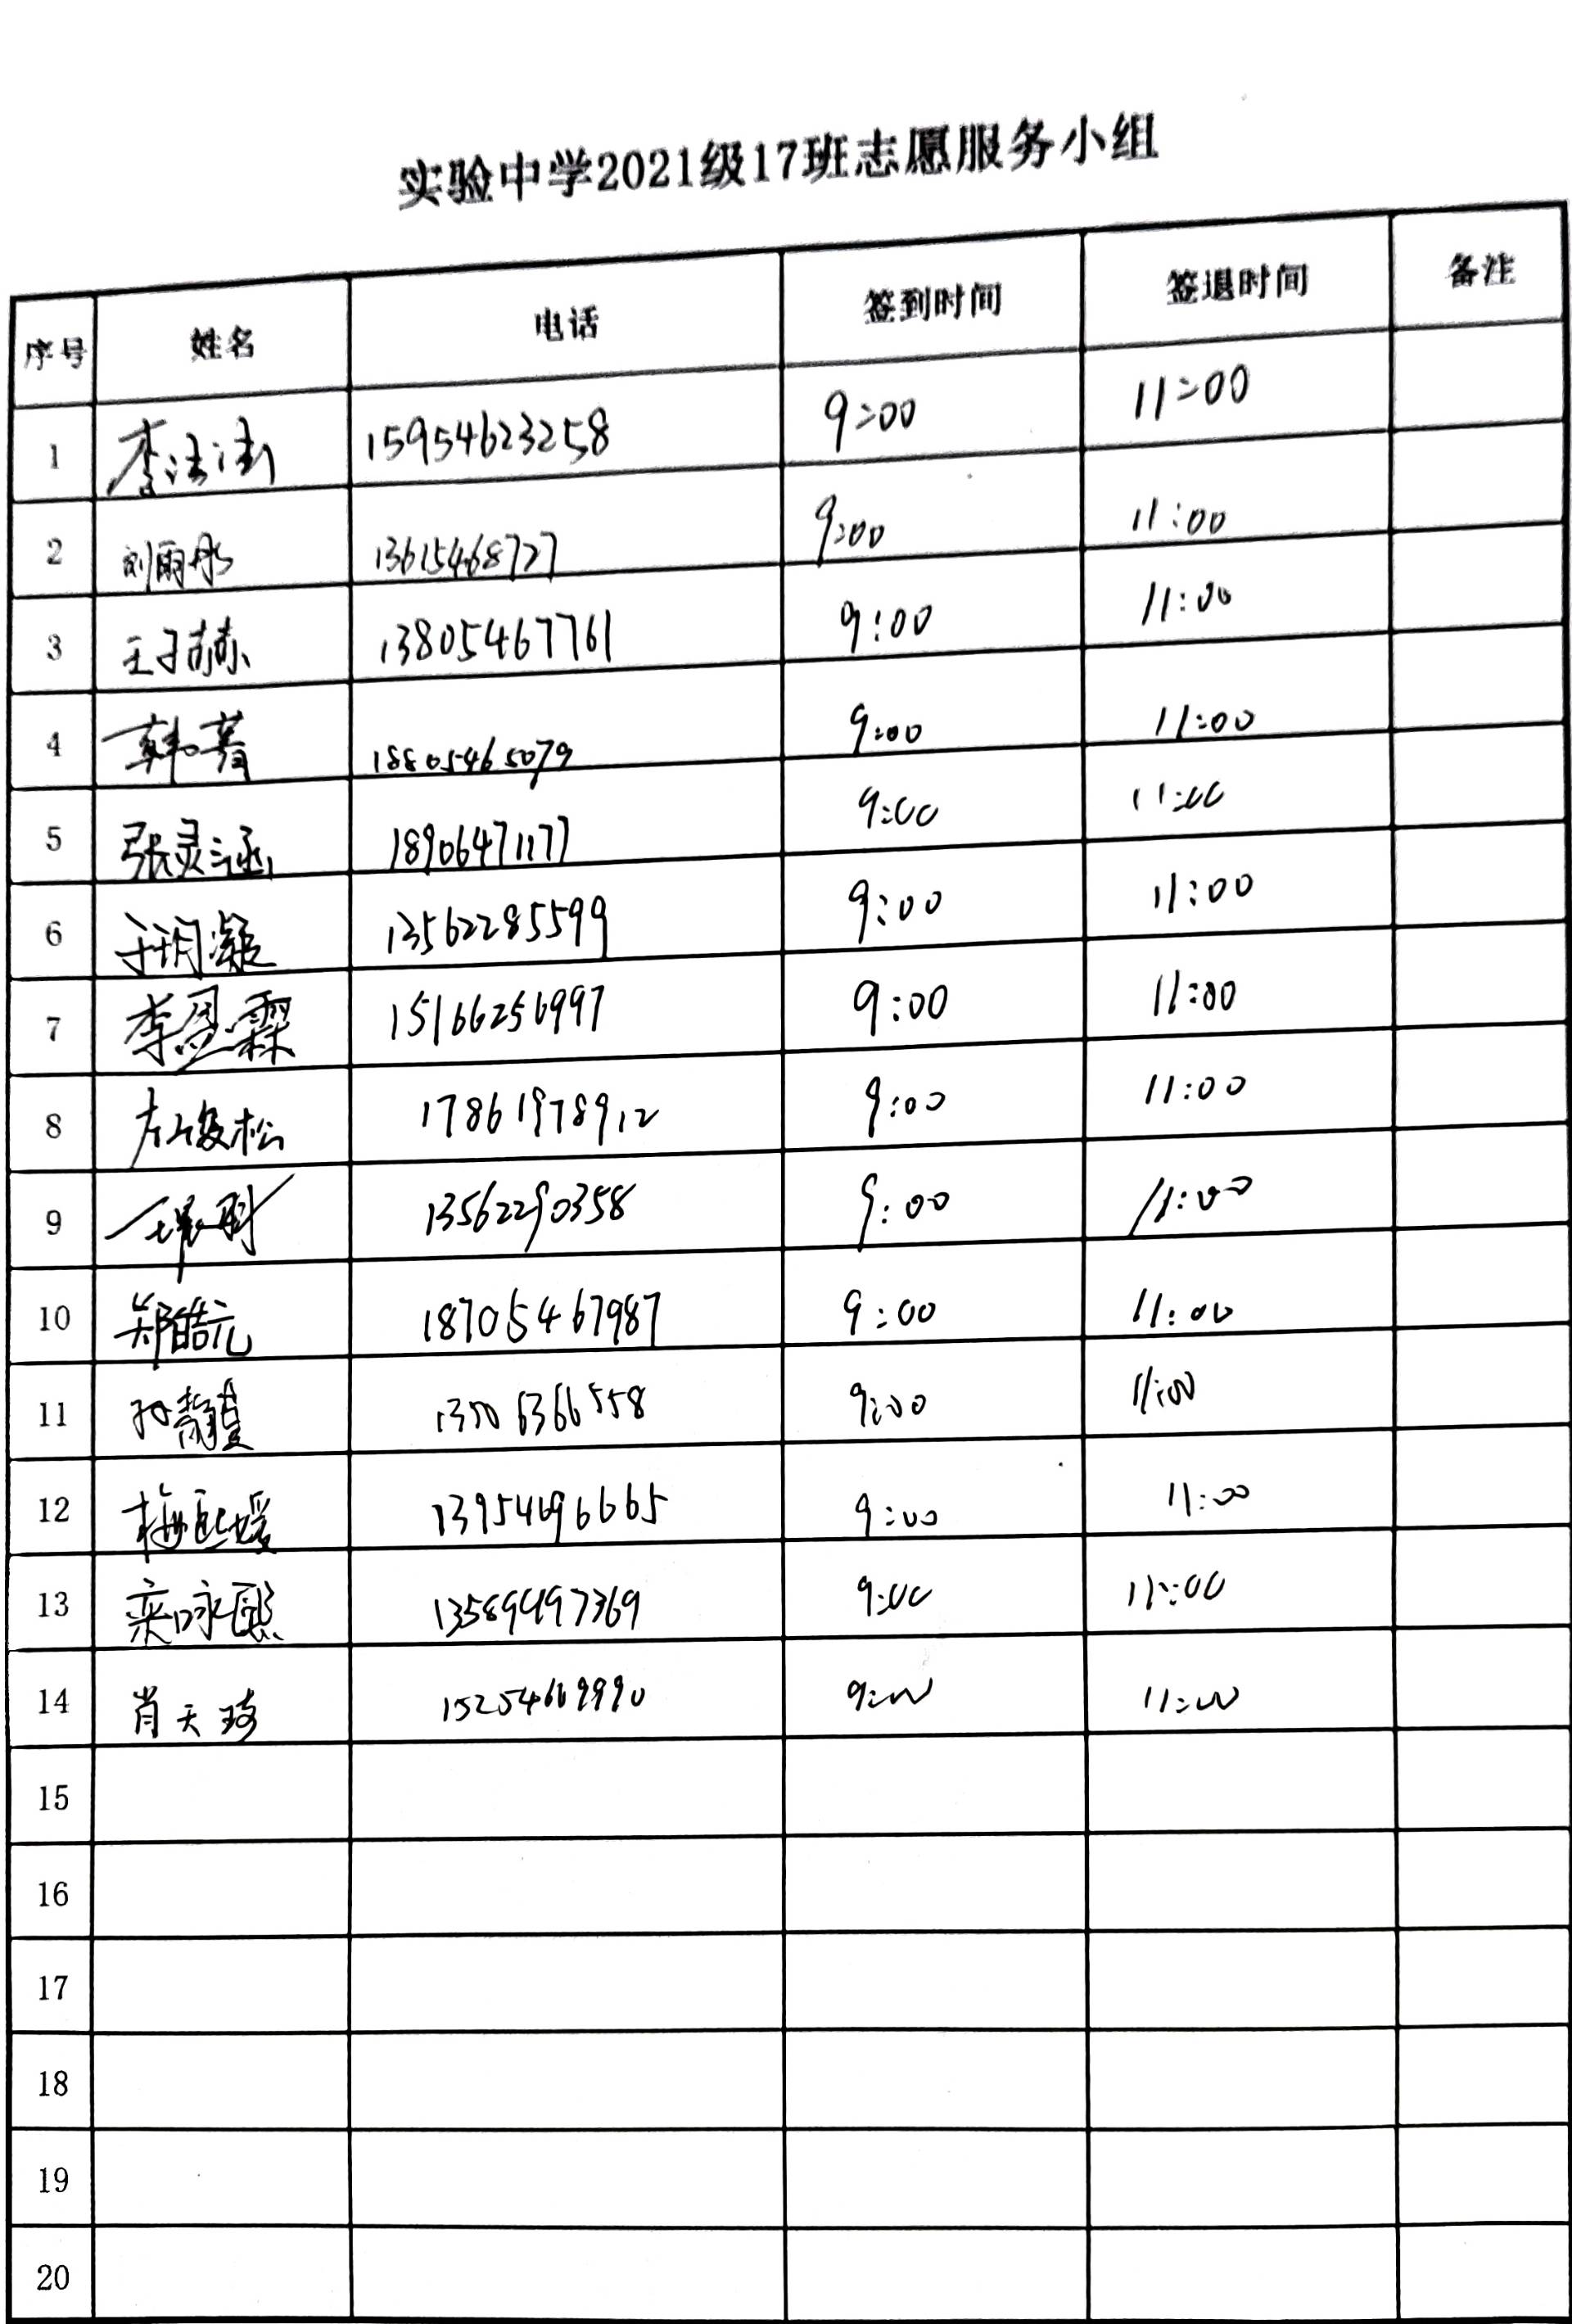 实验中学2021级17班志愿服务小组
序号 姓名 电话 签到时间 签退时间 备注
1 李 15954623258 9:00 11:00
2 刘雨彤 13615468727 9:00 11:00
3 王子赫 13805467761 9:00 11:00
4 韩菁 18805465079 9:00 11:00
5 张灵涵 18906471177 9:00 11:00
6 于玥凝 13562285599 9:00 11:00
7 李昱霖 15166256997 9:00 11:00
8 左俊松 17861978912 9:00 11:00
9 13562290358 9:00 11:00
10 郑皓元 18705467987 9:00 11:00
11 孙静萱 9:00 11:00
12 梅熙媛 13954696665 9:00 11:00
13 栾咏熙 13589497369 9:00 11:00
14 肖天琦 15254669990 9:00 11:00
15
16
17
18
19
20